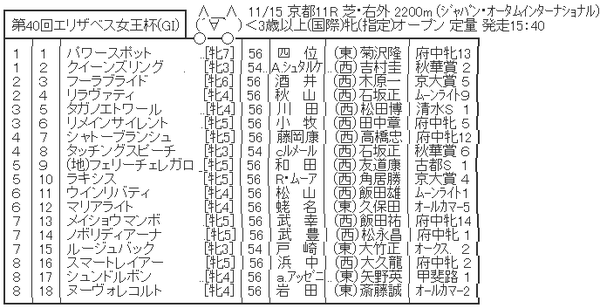 第40回エリザベス女王杯(GI) 11/15 京都11R 芝・右外 2200m (ジャパン・オータムインターナショナル)
<3歳以上(国際)牝(指定)オープン 定量 発走15:40
1 1 パワースポット ..[牝7] 56 四 位 (東)菊沢隆 府中牝13
1 2 クイーンズリング ..[牝3] 54 A.シュタルケ (西)吉村圭 秋華賞 2
2 3 フーラブライド ..[牝6] 56 酒 井 (西)木原一 京大賞 5
2 4 リラヴァティ ..[牝4] 56 秋 山 (西)石坂正 ムーンライト9
3 5 タガノエトワール ..[牝4] 56 川 田 (西)松田博 清水S 1
3 6 リメインサイレント ..[牝5] 56 小 牧 (西)田中章 府中牝 5
4 7 シャトーブランシュ ..[牝5] 56 藤岡康 (西)高橋忠 府中牝12
4 8 タッチングスピーチ ..[牝3] 54 C.ルメール (西)石坂正 秋華賞 6
5 9 (地)フェリーチェレガロ [牝5] 56 和 田 (西)友道康 古都S 1
5 10 ラキシス ..[牝5] 56 R・ムーア (西)角居勝 京大賞 4
6 11 ウインリバティ ..[牝4] 56 松 山 (西)飯田雄 ムーンライト1
6 12 マリアライト ..[牝4] 56 蛯 名 (東)久保田 オールカマー5
7 13 メイショウマンボ ..[牝5] 56 武 幸 (西)飯田祐 府中牝14
7 14 ノボリディアーナ ..[牝5] 56 武 豊 (西)松永昌 府中牝 1
7 15 ルージュバック ..[牝3] 54 戸 崎 (東)大竹正 オークス 2
8 16 スマートレイアー ..[牝5] 56 浜 中 (西)大久龍 府中牝 2
8 17 シュンドルボン ..[牝4] 56 a.アッゼニ (東)矢野英 甲斐路 1
8 18 ヌーヴォレコルト ..[牝4] 56 岩 田 (東)斎藤誠 オールカマー2